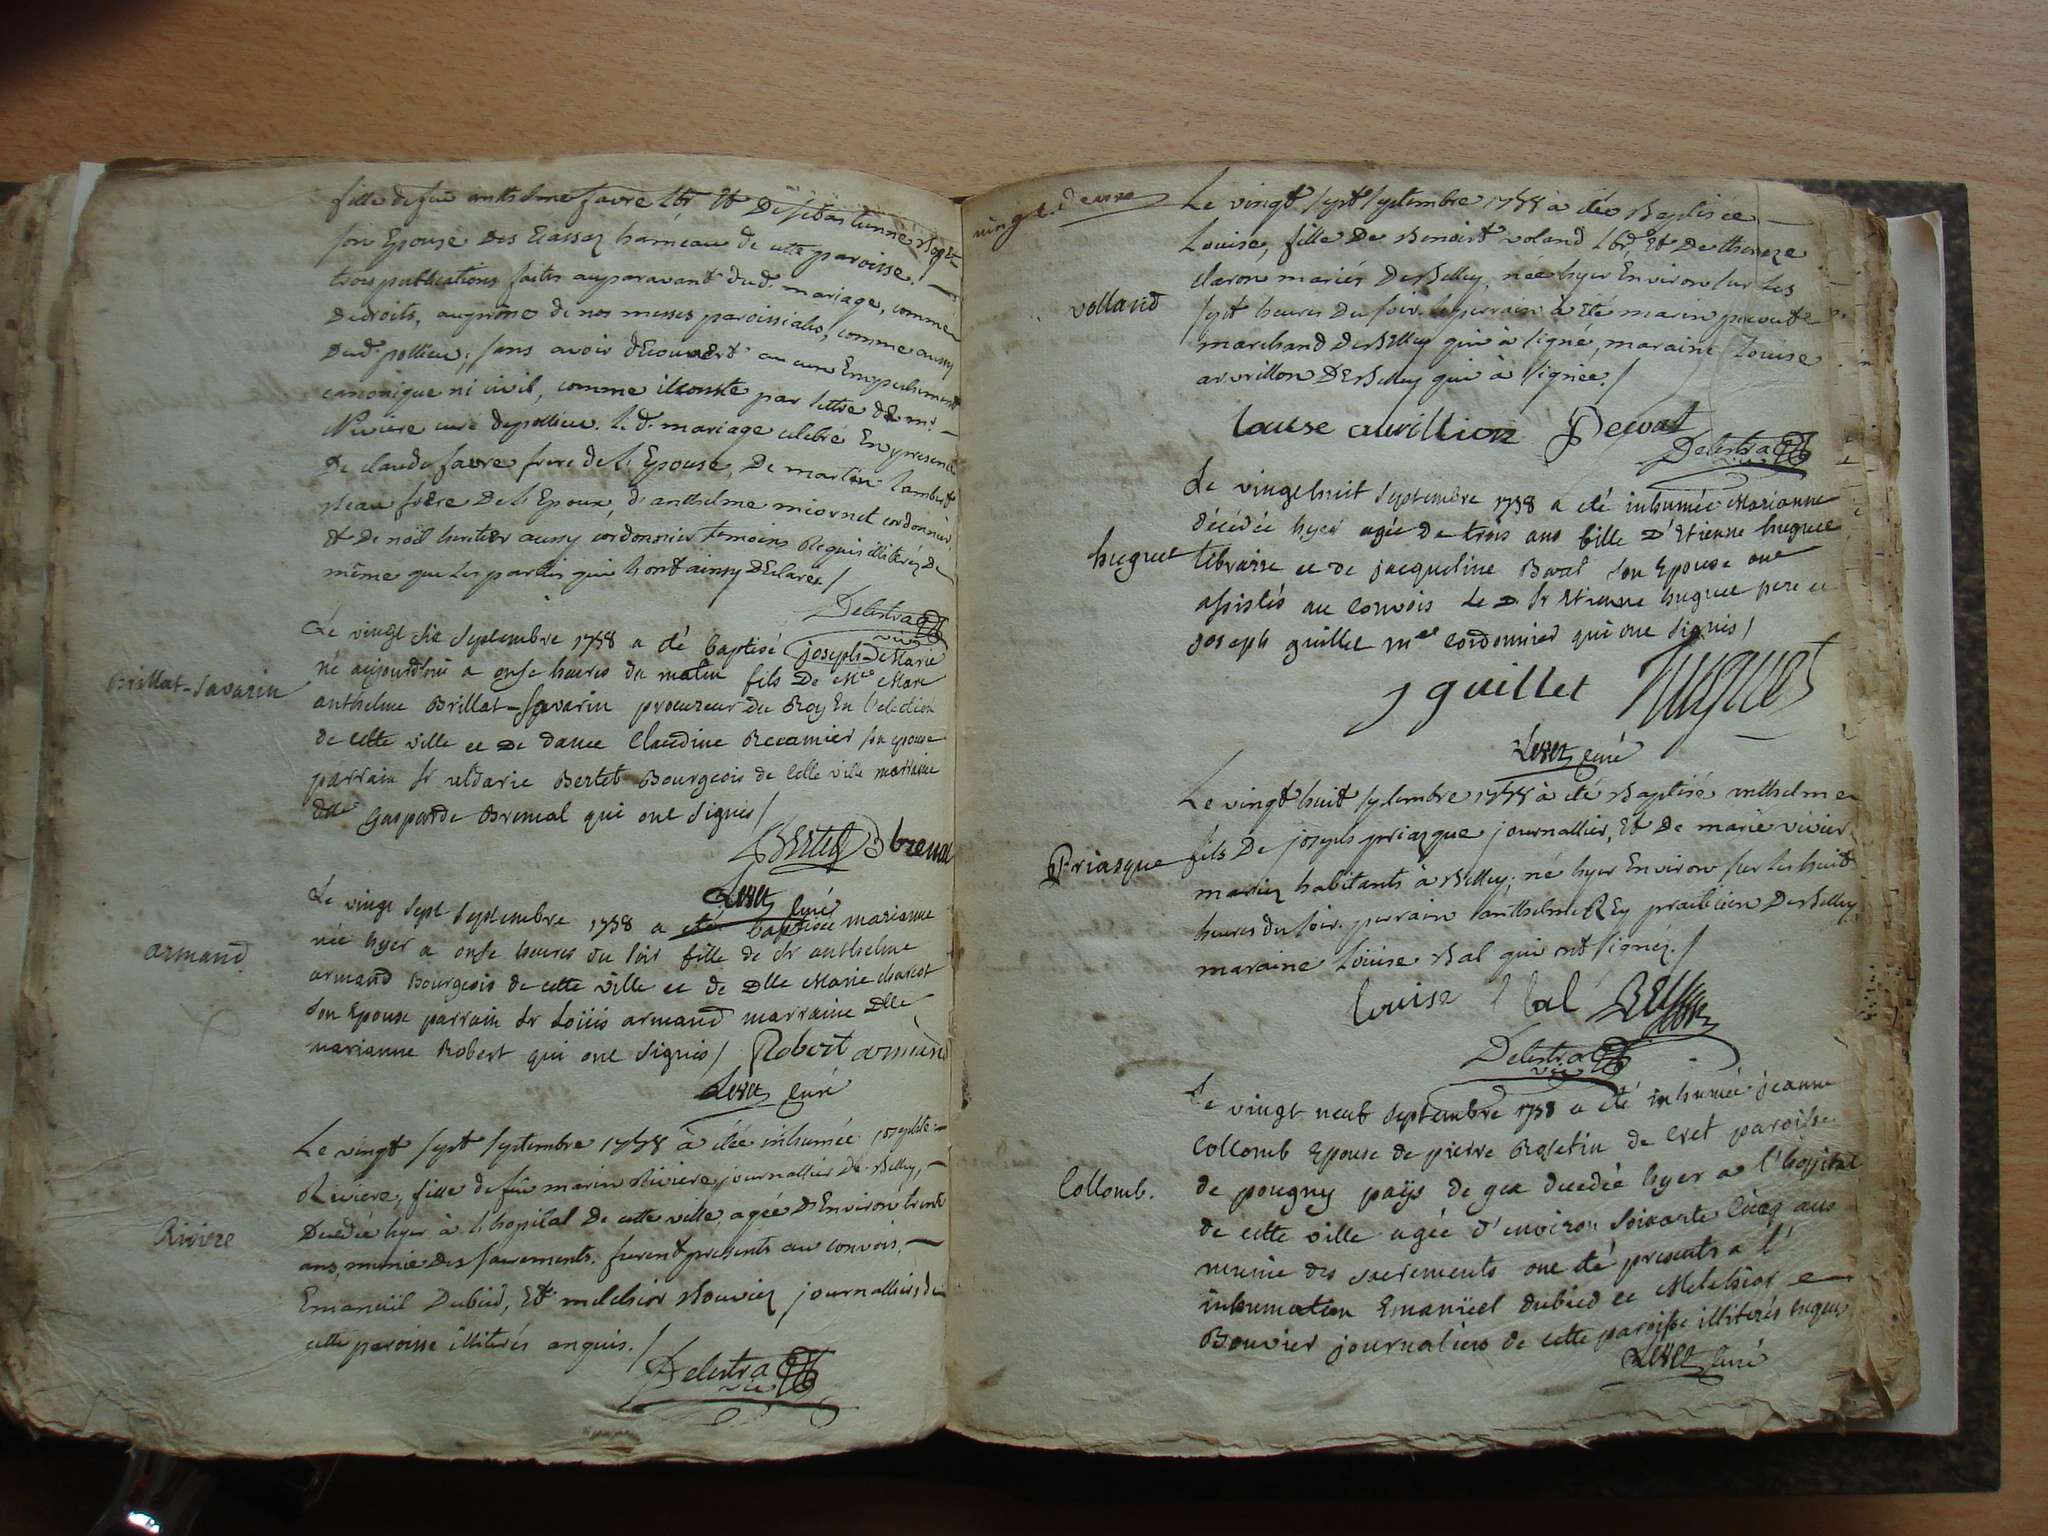 fille de feu anthelme favre lbr Et De sebastienne
son Epouse Des Ecassez hameau de cette paroisse
trois publications faites auparavant dud. mariage, comme
De droits, au prône de nos messes paroissiales, comme aussy
Dud. pollieu, sans avoir découvert aucun Empechement
canonique ni civil, comme il conste par lettre de mr.
Riviere curé de pollieu. le d. mariage celebré En presence
De claude favre frere de l'Epouse, De martin lambert
Beau frère De l'Epoux, d'anthelme miornet cordonnier,
Et De noël aussy cordonnier temoins Requis illiterés De
même que les parties qui l'ont ainsy Déclarez /
Delestra
vic
Brillat-Savarin
Le vingt six Septembre 1758 a eté baptisé joseph De Marie
né aujourdhui a onse heures du matin fils De Me Marc
anthelme Brillat-Savarin procureur du Roy En l'election
de cette ville et De dame Claudine Recamier son epouse
parrain Sr Bertet Bourgeois de cette ville marraine
dlle Gasparde Brenal qui ont signés /
Bertet Brenal
Levet Curé
armand
Le vingt sept Septembre 1758 a eté baptisée marianne
née hyer a onse heures du soir fille de Sr anthelme
armand Bourgeois de cette ville et de Dlle Marie
son Epouse parrain Sr Loüis armand marraine Dlle
marianne Robert qui ont signés / Robert armand
Levet Curé
Riviere
Le vingt sept septembre 1758 à étée inhumée josephte
Riviere, fille de feu marin Riviere journallier De Belley,
Decedée hyer à l'hopital De cette ville, agée D'Environ trente
ans, munie Des sacrements. furent presents au convois,
Emanuïl Dubied, Et melchior Bouvier journalliers de
cette paroisse illiterés anquis. /
Delestra
vic
vingt deuxe
volland
Le vingt sept septembre 1758 à étée Baptisée
Louise, fille De Benoist voland lbr, Et De thereze
claron mariés De Belley, née hyer Environ sur les
sept heures Du soir. le parrain à été marin
marchand De Belley qui à signé, maraine Louise
avrillon De Belley qui à signée. /
Louise avrillion
Delestra
vic
huguet
Le vingthuit Septembre 1758 a eté inhumée Marianne
décédée hyer agée de trois ans fille D'Etienne huguet
libraire et de jacqueline son Epouse ont
assistés au Convois Le D. Sr Etienne huguet pere et
joseph guillet me Cordonnier qui ont signés /
j guillet huguet
Levet Curé
Priasque
Le vingt huit septembre 1758 à été Baptisé anthelme
fils De joseph priasque journallier, Et De marie vivier
mariez habitants à Belley, né hyer Environ sur les huit
heures du soir. parrain anthelme Rey praticien De Belley
maraine Louise Bal qui ont signéz. /
louise bal Rey
Delestra
vic
Collomb.
Le vingt neuf Septembre 1758 a eté inhumée jeanne
Collomb Epouse de pierre Rosetin de Cret paroisse
de pougny païs de gex decedée hyer a l'hopital
de cette ville agée d'environ soixante Cinq ans
munie des sacrements ont eté presents a l'
inhumation Emanüel dubied et Melchior
Bouvier journaliers de cette paroisse illiterés
Levet Curé